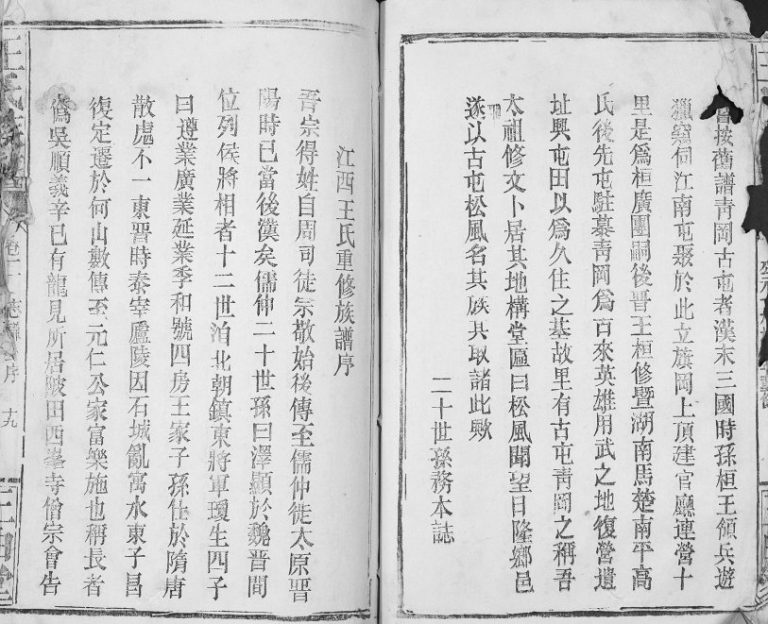 嘗按舊譜靑岡古屯者漢末三國時孫桓王領兵遊
獵察何江南屯聚於此立旗岡上頂建官廳連營十
里是爲桓廣團嗣後晋王桓修曁湖南馬楚南平高
氏後先屯駐慕靑岡爲古來英雄用武之地復營遺
址興屯田以爲久住之基故里有古屯靑岡之稱吾
太祖修文卜居其地構堂匾曰松風聞望日隆鄉邑
遂以古屯松風名其族其取諸此歟
二十世孫務本誌
江西王氏重修族譜序
吾宗得姓自周司徒宗敬始後傳至儒仲徙太原晋
陽時已當後漢矣儒仲二十世孫曰澤顯於魏晋間
位列侯將相者十二世洎北朝鎮東將軍瓊生四子
曰遵業廣業延業季和號四房王家子孫仕於隋唐
散處不一東晋時泰宰廬陵因石城亂寓水東子昌
復定遷於何山數傳至元仁公家富樂施也稱長者
爲吳順義辛巳有龍見所居陂田西峯寺僧宗會告
序 十九